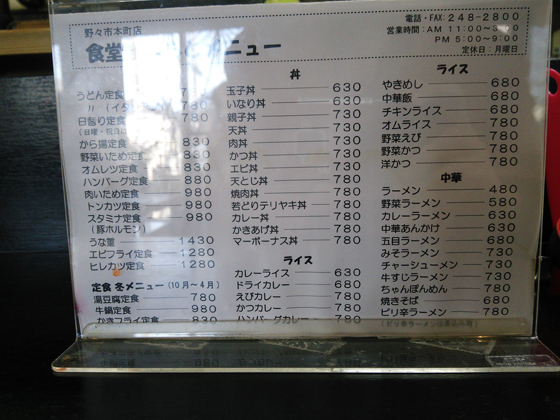 野々市本町店
食堂 ニュー
電話・FAX: 248-2800
営業時間: AM 11:00〜
PM 5:00〜9:00
定休日: 月曜日
うどん定食
〃 (イタ 780
日替り定食 780
(日曜・祝日
から揚定食 830
野菜いため定食 830
オムレツ定食 830
ハンバーグ定食 880
肉いため定食 980
トンカツ定食 980
スタミナ定食 980
(豚ホルモン)
うな重 1430
エビフライ定食 1280
ヒレカツ定食 1280
定食 冬メニュー (10月〜4月)
湯豆腐定食 780
牛鍋定食 980
かきフライ定食 830
丼
玉子丼 630
いなり丼 630
親子丼 730
天丼 730
肉丼 730
かつ丼 730
エビ丼 730
天とじ丼 780
焼肉丼 780
若どりテリヤキ丼 780
カレー丼 780
かきあげ丼 780
マーボーナス丼 780
ライス
カレーライス 630
ドライカレー 680
えびカレー 780
かつカレー 780
ハンバーグカレー 780
ライス
やきめし 680
中華飯 680
チキンライス 680
オムライス 780
野菜えび 780
野菜かつ 780
洋かつ 780
中華
ラーメン 480
野菜ラーメン 580
カレーラーメン 630
中華あんかけ 630
五目ラーメン 680
みそラーメン 730
チャーシューメン 730
牛すじラーメン 730
ちゃんぽんめん 780
焼きそば 680
ピリ辛ラーメン 780